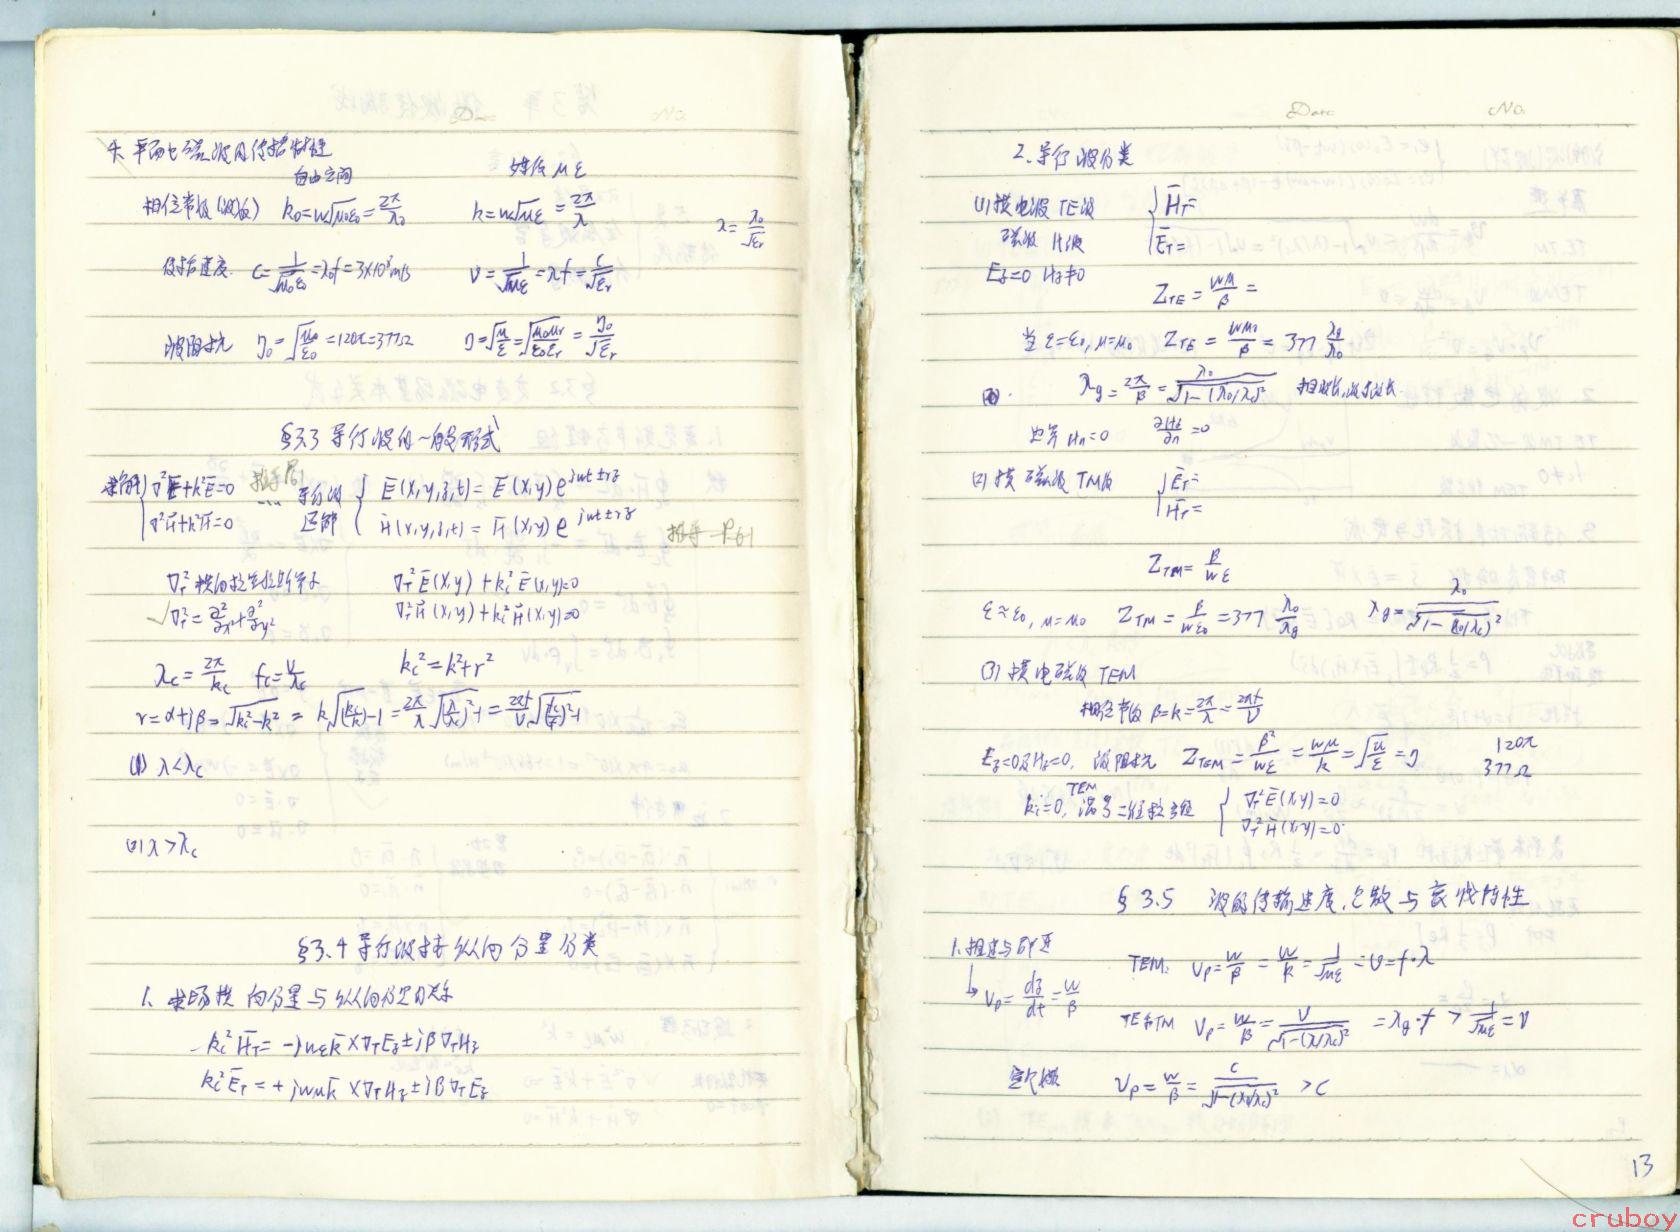 Date No.
4. 平面电磁波的传播特性
自由空间 媒质 μ ε
相位常数(波数) k₀=w√μ₀ε₀=2π/λ₀ k=w√με=2π/λ λ=λ₀/√εr
传播速度. c=1/√μ₀ε₀=λ₀f=3×10⁸m/s v=1/√με=λf=c/√εr
波阻抗 η₀=√(μ₀/ε₀)=120π=377Ω η=√(μ/ε)=√(μ₀μr/ε₀εr)=η₀/√εr
§3.3 导行波的一般形式
求解 ∇²E̅+k²E̅=0 导行波 E̅(x,y,z,t)=E̅(x,y)e^(jwt±rz)
∇²H̅+k²H̅=0 通解 H̅(x,y,z,t)=H̅(x,y)e^(jwt±rz) 推导 P61
∇T² 横向拉普拉斯算子 ∇T²E̅(x,y)+kc²E̅(x,y)=0
√∇T²=∂²/∂x²+∂²/∂y² ∇T²H̅(x,y)+kc²H̅(x,y)=0
λc=2π/kc fc=v/λc kc²=k²+r²
r=α+jβ=√(kc²-k²)=k√((kc/k)²-1)=2π/λ√((λ/λc)²-1)=2πf/v√((fc/f)²-1)
(1) λ<λc
(2) λ>λc
§3.4 导行波按纵向分量分类
1. 求场横向分量与纵向分量关系
-kc²H̅T=-jwεk̅×∇TEz±jβ∇THz
kc²E̅T=+jwμk̅×∇THz±jβ∇TEz
Date No.
2. 导行波分类
(1) 横电波 TE波 H̅T=
磁波 H波 E̅T=
Ez=0 Hz≠0
ZTE=wμ/β=
当 ε=ε₀, μ=μ₀ ZTE=wμ₀/β=377 λg/λ₀
λg=2π/β=λ₀/√(1-(λ₀/λc)²)
边界 Hn=0 ∂Hz/∂n=0
(2) 横磁波 TM波 E̅T=
H̅T=
ZTM=β/wε
ε≈ε₀, μ=μ₀ ZTM=β/wε₀=377 λ₀/λg λg=λ₀/√(1-(λ₀/λc)²)
(3) 横电磁波 TEM
相位常数 β=k=2π/λ=2πf/v
Ez=0及Hz=0, 波阻抗 ZTEM=β²/wε=wμ/k=√(μ/ε)=η 120π
377Ω
TEM
kc=0, 满足二维拉方程 ∇T²E̅(x,y)=0
∇T²H̅(x,y)=0
§3.5 波的传输速度、色散与衰减特性
1. 相速与群速 TEM: vp=w/β=w/k=1/√με=v=f·λ
↳ vp=dz/dt=w/β
TE和TM vp=w/β=v/√(1-(λ/λc)²)=λg·f>1/√με=v
空气填 vp=w/β=c/√(1-(λ₀/λc)²)>c
13
cruboy